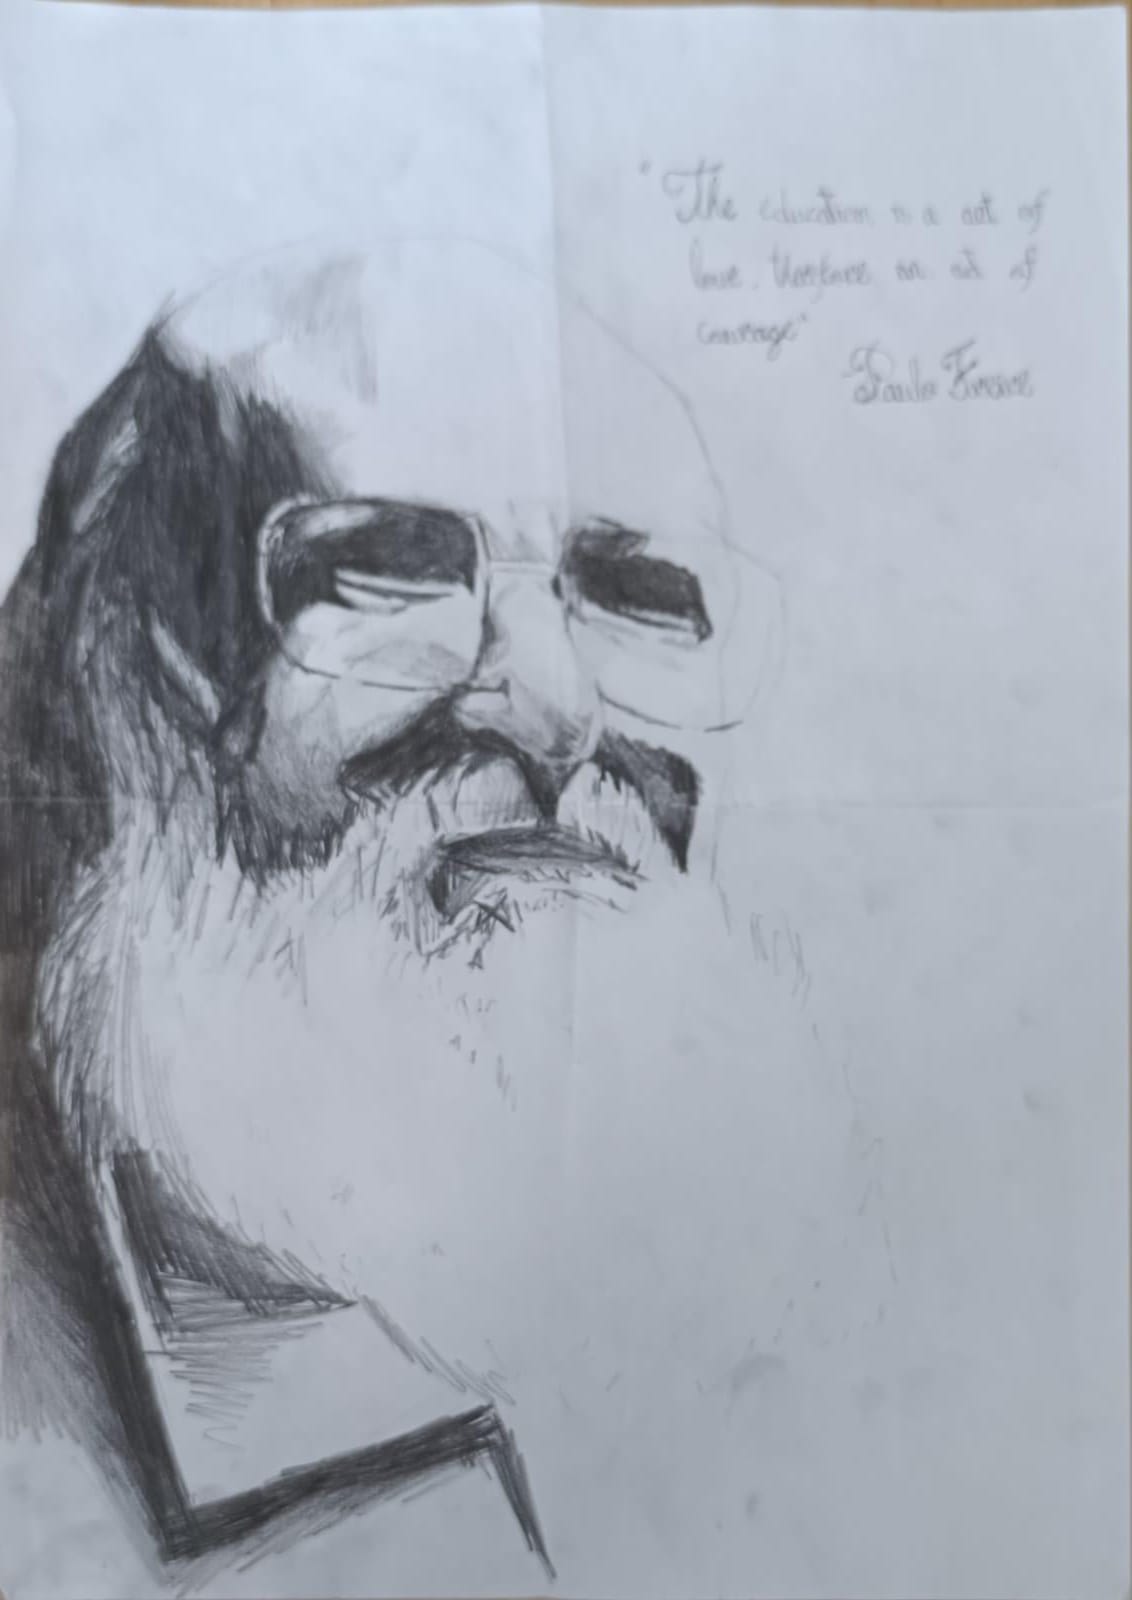 "The education is a act of
love, therefore an act of
courage"
Paulo Freire